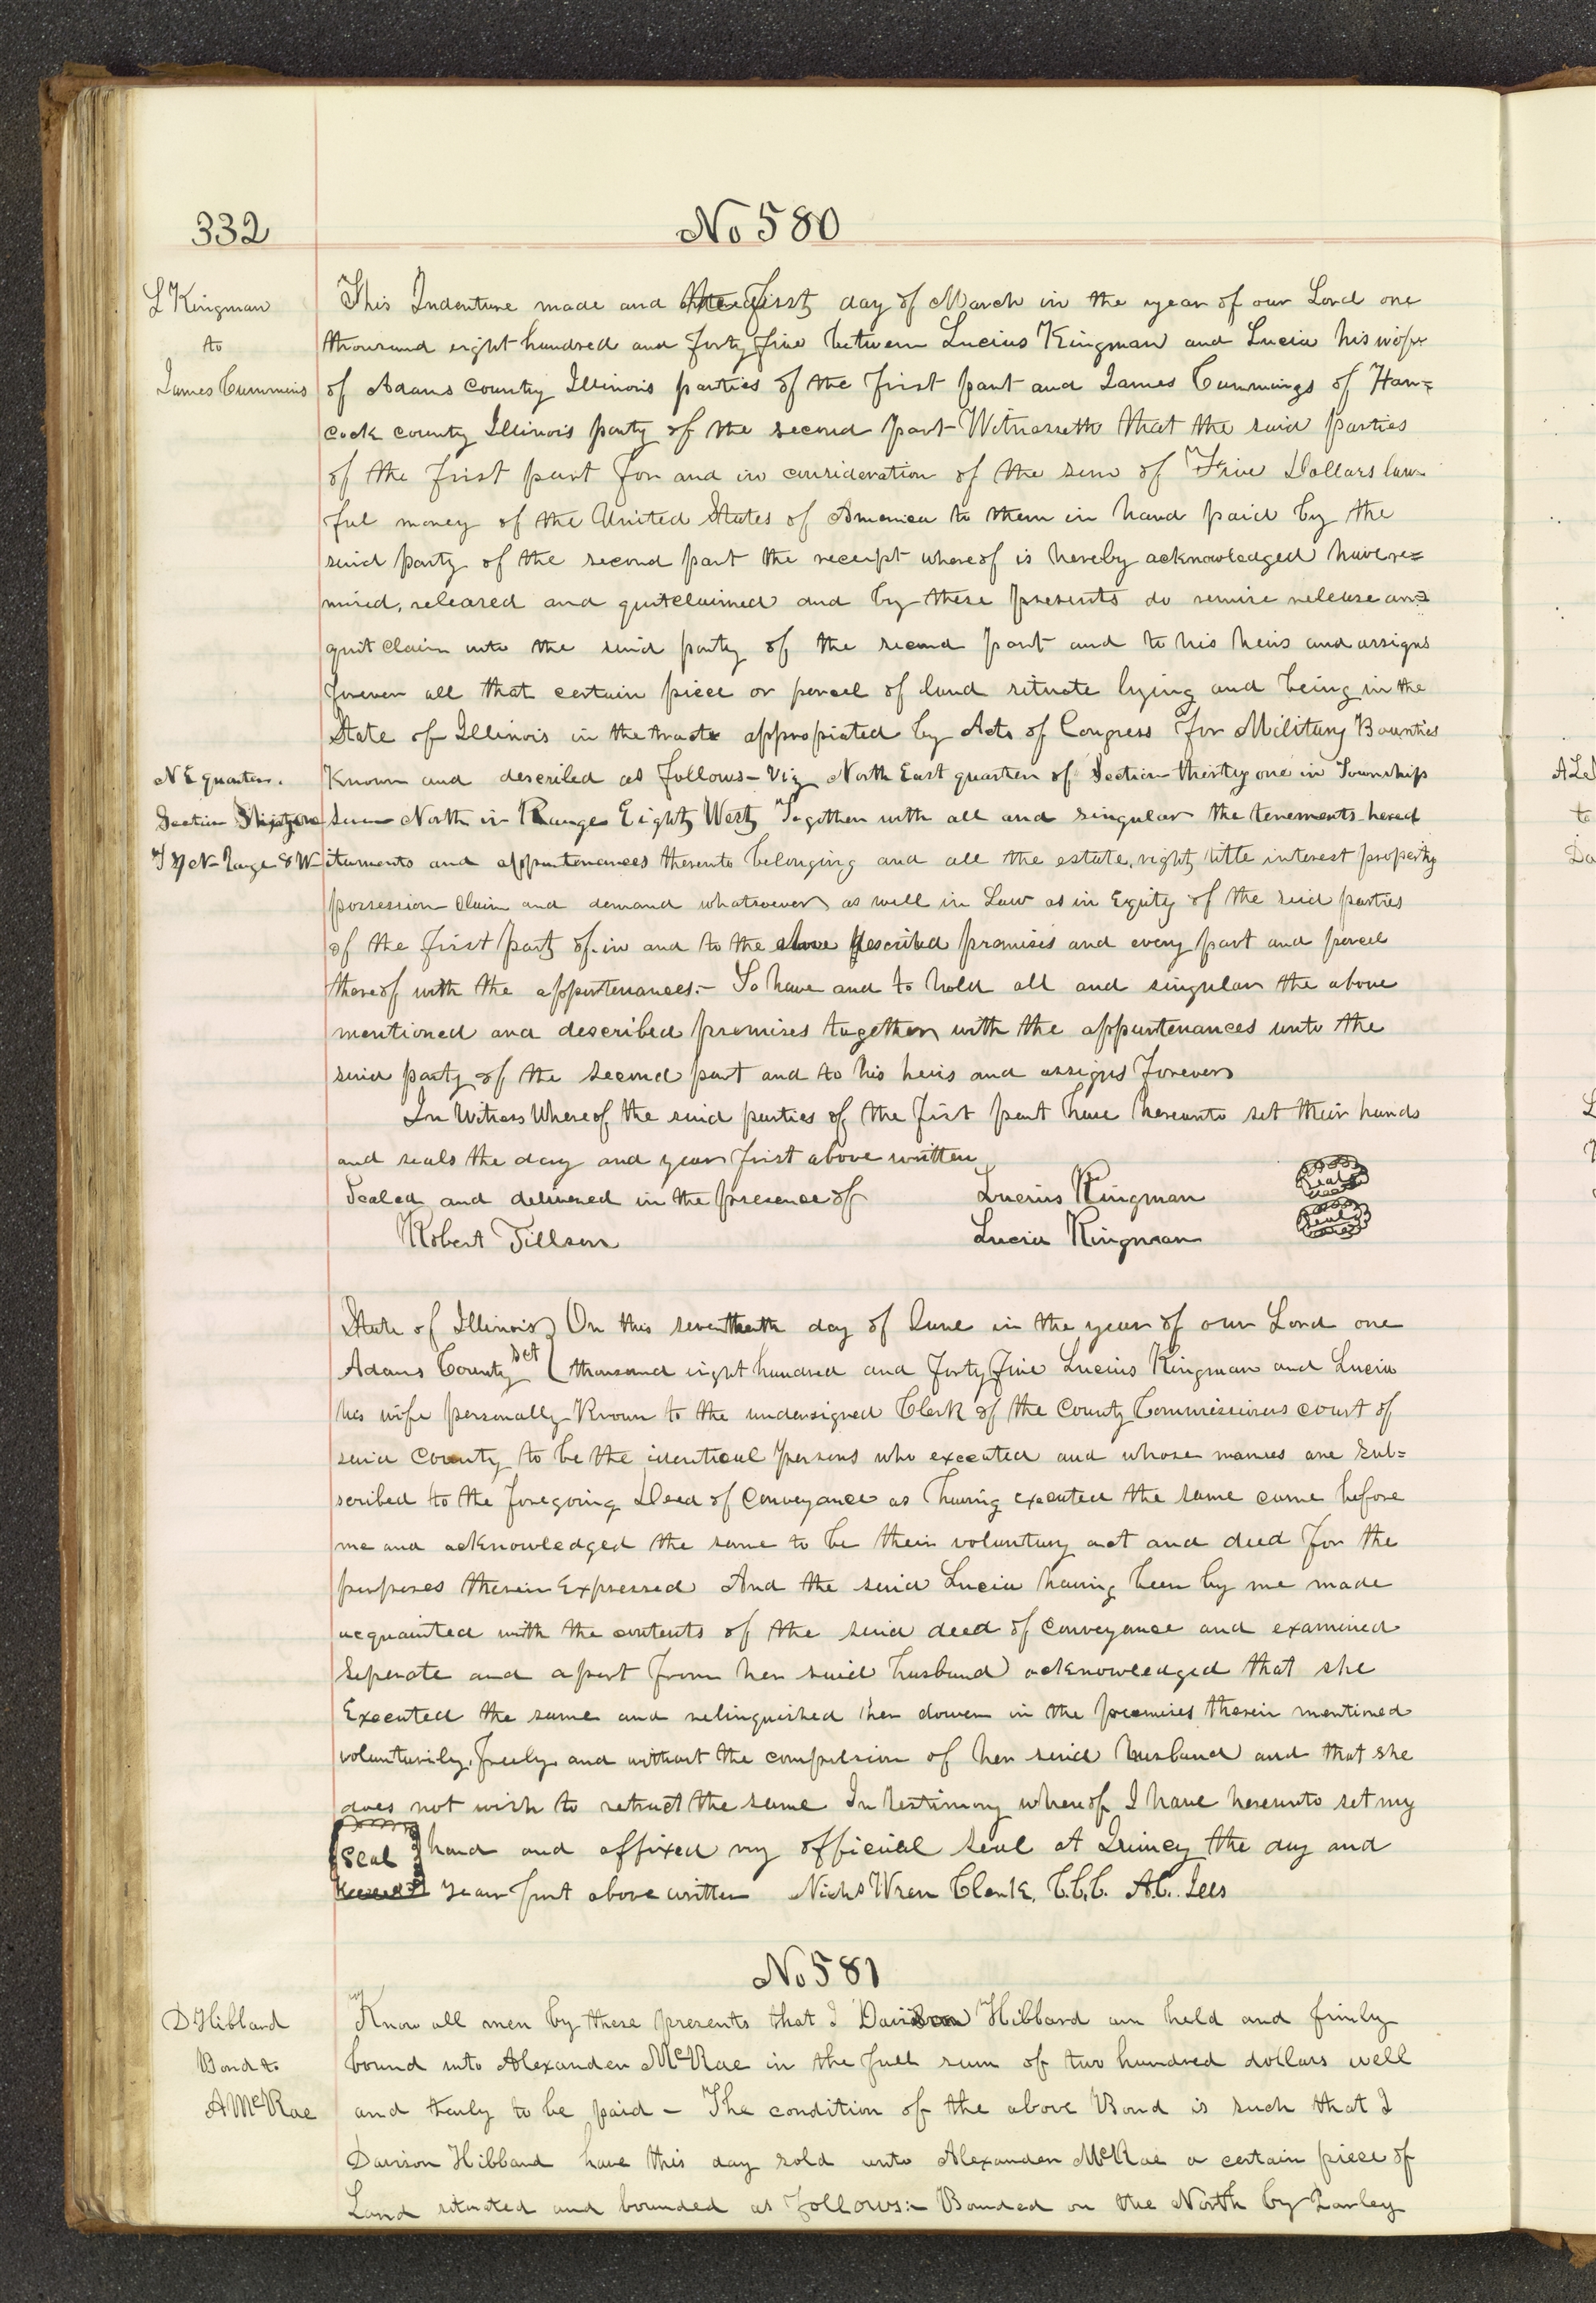 332
No 580
L Kingman
to
James Cummins
This Indenture made and the first day of March in the year of our Lord one
thousand eight hundred and forty five between Lucius Kingman and Lucia his wife
of Adams county Illinois parties of the first part and James Cummings of Han=
cock county Illinois party of the second part Witnesseth that the said parties
of the first part for and in consideration of the sum of Five Dollars law
ful money of the United States of America to them in hand paid by the
said party of the second part the receipt whereof is hereby acknowledged have re=
mised, released and quitclaimed and by these presents do remise release an=
quit claim unto the said party of the second part and to his heirs and assigns
forever all that certain piece or parcel of land situate lying and being in the
State of Illinois in the tracts appropiated by Acts of Congress for Military Bounties
NE quarter.
Section Thirty one
T 7 N Range 8 W
Known and described as follows - Viz North East quarter of Section thirty one in Township
Seven North in Range Eight West Together with all and singular the tenements hered
itaments and appurtenances thereunto belonging and all the estate, right title interest property
possession claim and demand whatsoever as well in Law as in Equity of the said parties
of the first part of in and to the above described premises and every part and parcel
thereof with the appurtenances.- To have and to hold all and singular the above
mentioned and described premises together with the appurtenances unto the
said party of the second part and to his heirs and assigns forever
In Witness Whereof the said parties of the first part have hereunto set their hands
and seals the day and year first above written
Sealed and delivered in the presence of Lucius Kingman Seal
Robert Tillson Lucia Kingman Seal
State of Illinois On this seventeenth day of June in the year of our Lord one
Adams County Sct thousand eight hundred and forty five Lucius Kingman and Lucia
his wife personally Known to the undersigned Clerk of the County Commissioners court of
said County to be the identical persons who executed and whose names are sub=
scribed to the foregoing Deed of Conveyance as having executed the same came before
me and acknowledged the same to be their voluntary act and deed for the
purposes therein Expressed And the said Lucia having been by me made
acquainted with the contents of the said deed of conveyance and examined
Seperate and apart from her said husband acknowledged that she
Executed the same and relinquished her dower in the premises therein mentioned
voluntarily, freely and without the compulsion of her said husband and that she
does not wish to retract the same In testimony whereof I have hereunto set my
Seal hand and affixed my official seal at Quincy the day and
year first above written Nichs Wren Clerk, C.C.C. A.C. Ills
No 581
D Hibbard
Bond to
A McRae
Know all men by these presents that I Davison Hibbard am held and firmly
bound unto Alexander McRae in the full sum of two hundred dollars well
and truly to be paid - The condition of the above Bond is such that I
Davison Hibbard have this day sold unto Alexander McRae a certain piece of
Land situated and bounded as follows:- Bounded on the North by Parley
to